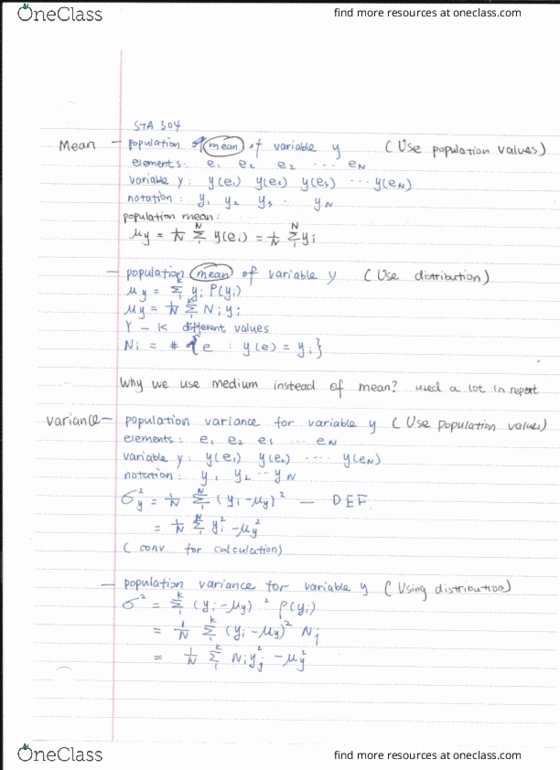 OneClass find more resources at oneclass.com
STA 304
Mean — population of mean of variable y (Use population values)
elements: e₁ e₂ e₂ ... eN
variable y: y(e₁) y(e₂) y(e₃) ... y(eN)
notation: y₁ y₂ y₃ ... yN
population mean:
μy = 1/N Σ₁ᴺ y(eᵢ) = 1/N Σ₁ᴺ yᵢ
— population mean of variable y (Use distribution)
μy = Σ₁ᵏ yᵢ P(yᵢ)
μy = 1/N Σ₁ᵏ Nᵢ yᵢ
Y — k different values
Nᵢ = # {e : y(e) = yᵢ}
Why we use medium instead of mean? used a lot in report
variance — population variance for variable y (Use population values)
elements: e₁ e₂ e₁ ... eN
variable y: y(e₁) y(e₂) .... y(eN)
notation: y₁ y₂ ... yN
σy² = 1/N Σ₁ᴺ (yᵢ - μy)² — DEF.
= 1/N Σ₁ᴺ yᵢ² - μy²
(conv for calculation)
— population variance for variable y (Using distribution)
σ² = Σ₁ᵏ (yᵢ - μy)² P(yᵢ)
= 1/N Σ₁ᵏ (yᵢ - μy)² Nj
= 1/N Σ₁ᵏ Nᵢ yj² - μy²
OneClass find more resources at oneclass.com